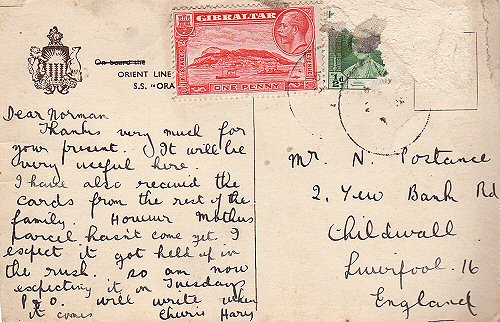 On board the
ORIENT LINE
S.S. "ORA
GIBRALTAR
POSTAGE
ONE PENNY
½d
Dear Norman
Thanks very much for
your present. It will be
very useful here.
I have also received the
cards from the rest of the
family. However Mothers
parcel hasn't come yet. I
expect it got held up in
the rush. so am now
expecting it on Tuesdays
P & O. will write when
it comes Cheerio Harry
Mr N. Postance
2. Yew Bank Rd
Childwall
Liverpool. 16
England